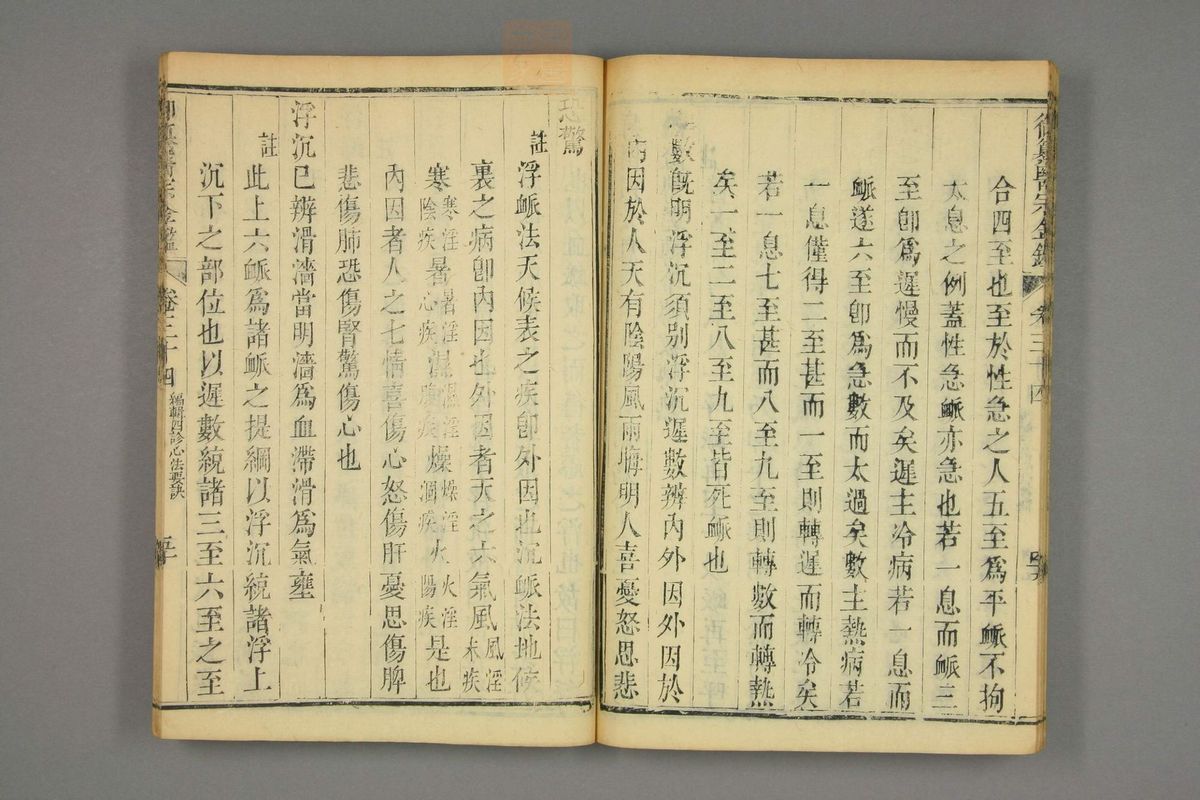 御纂醫宗金鑑 卷三十四
合四至也至於性急之人五至爲平脈不拘
太息之例蓋性急脈亦急也若一息而脈三
至卽爲遲慢而不及矣遲主冷病若一息而
脈遂六至卽爲急數而太過矣數主熱病若
一息僅得二至甚而一至則轉遲而轉冷矣
若一息七至甚而八至九至則轉數而轉熱
矣一至二至八至九至皆死脈也
數既明浮沉須別浮沉遲數辨內外因外因於
內因於人天有陰陽風雨晦明人喜憂怒思悲
恐驚
註 浮脈法天候表之疾卽外因也沉脈法地候
裏之病卽內因也外因者天之六氣風風淫末疾
寒寒淫陰疾暑暑淫心疾濕濕淫腹疾燥燥淫涸疾火火淫陽疾是也
內因者人之七情喜傷心怒傷肝憂思傷脾
悲傷肺恐傷腎驚傷心也
浮沉已辨滑濇當明濇爲血滯滑爲氣壅
註 此上六脈爲諸脈之提綱以浮沉統諸浮上
沉下之部位也以遲數統諸三至六至之至
御纂醫宗金鑑 卷三十四 編輯四診心法要訣